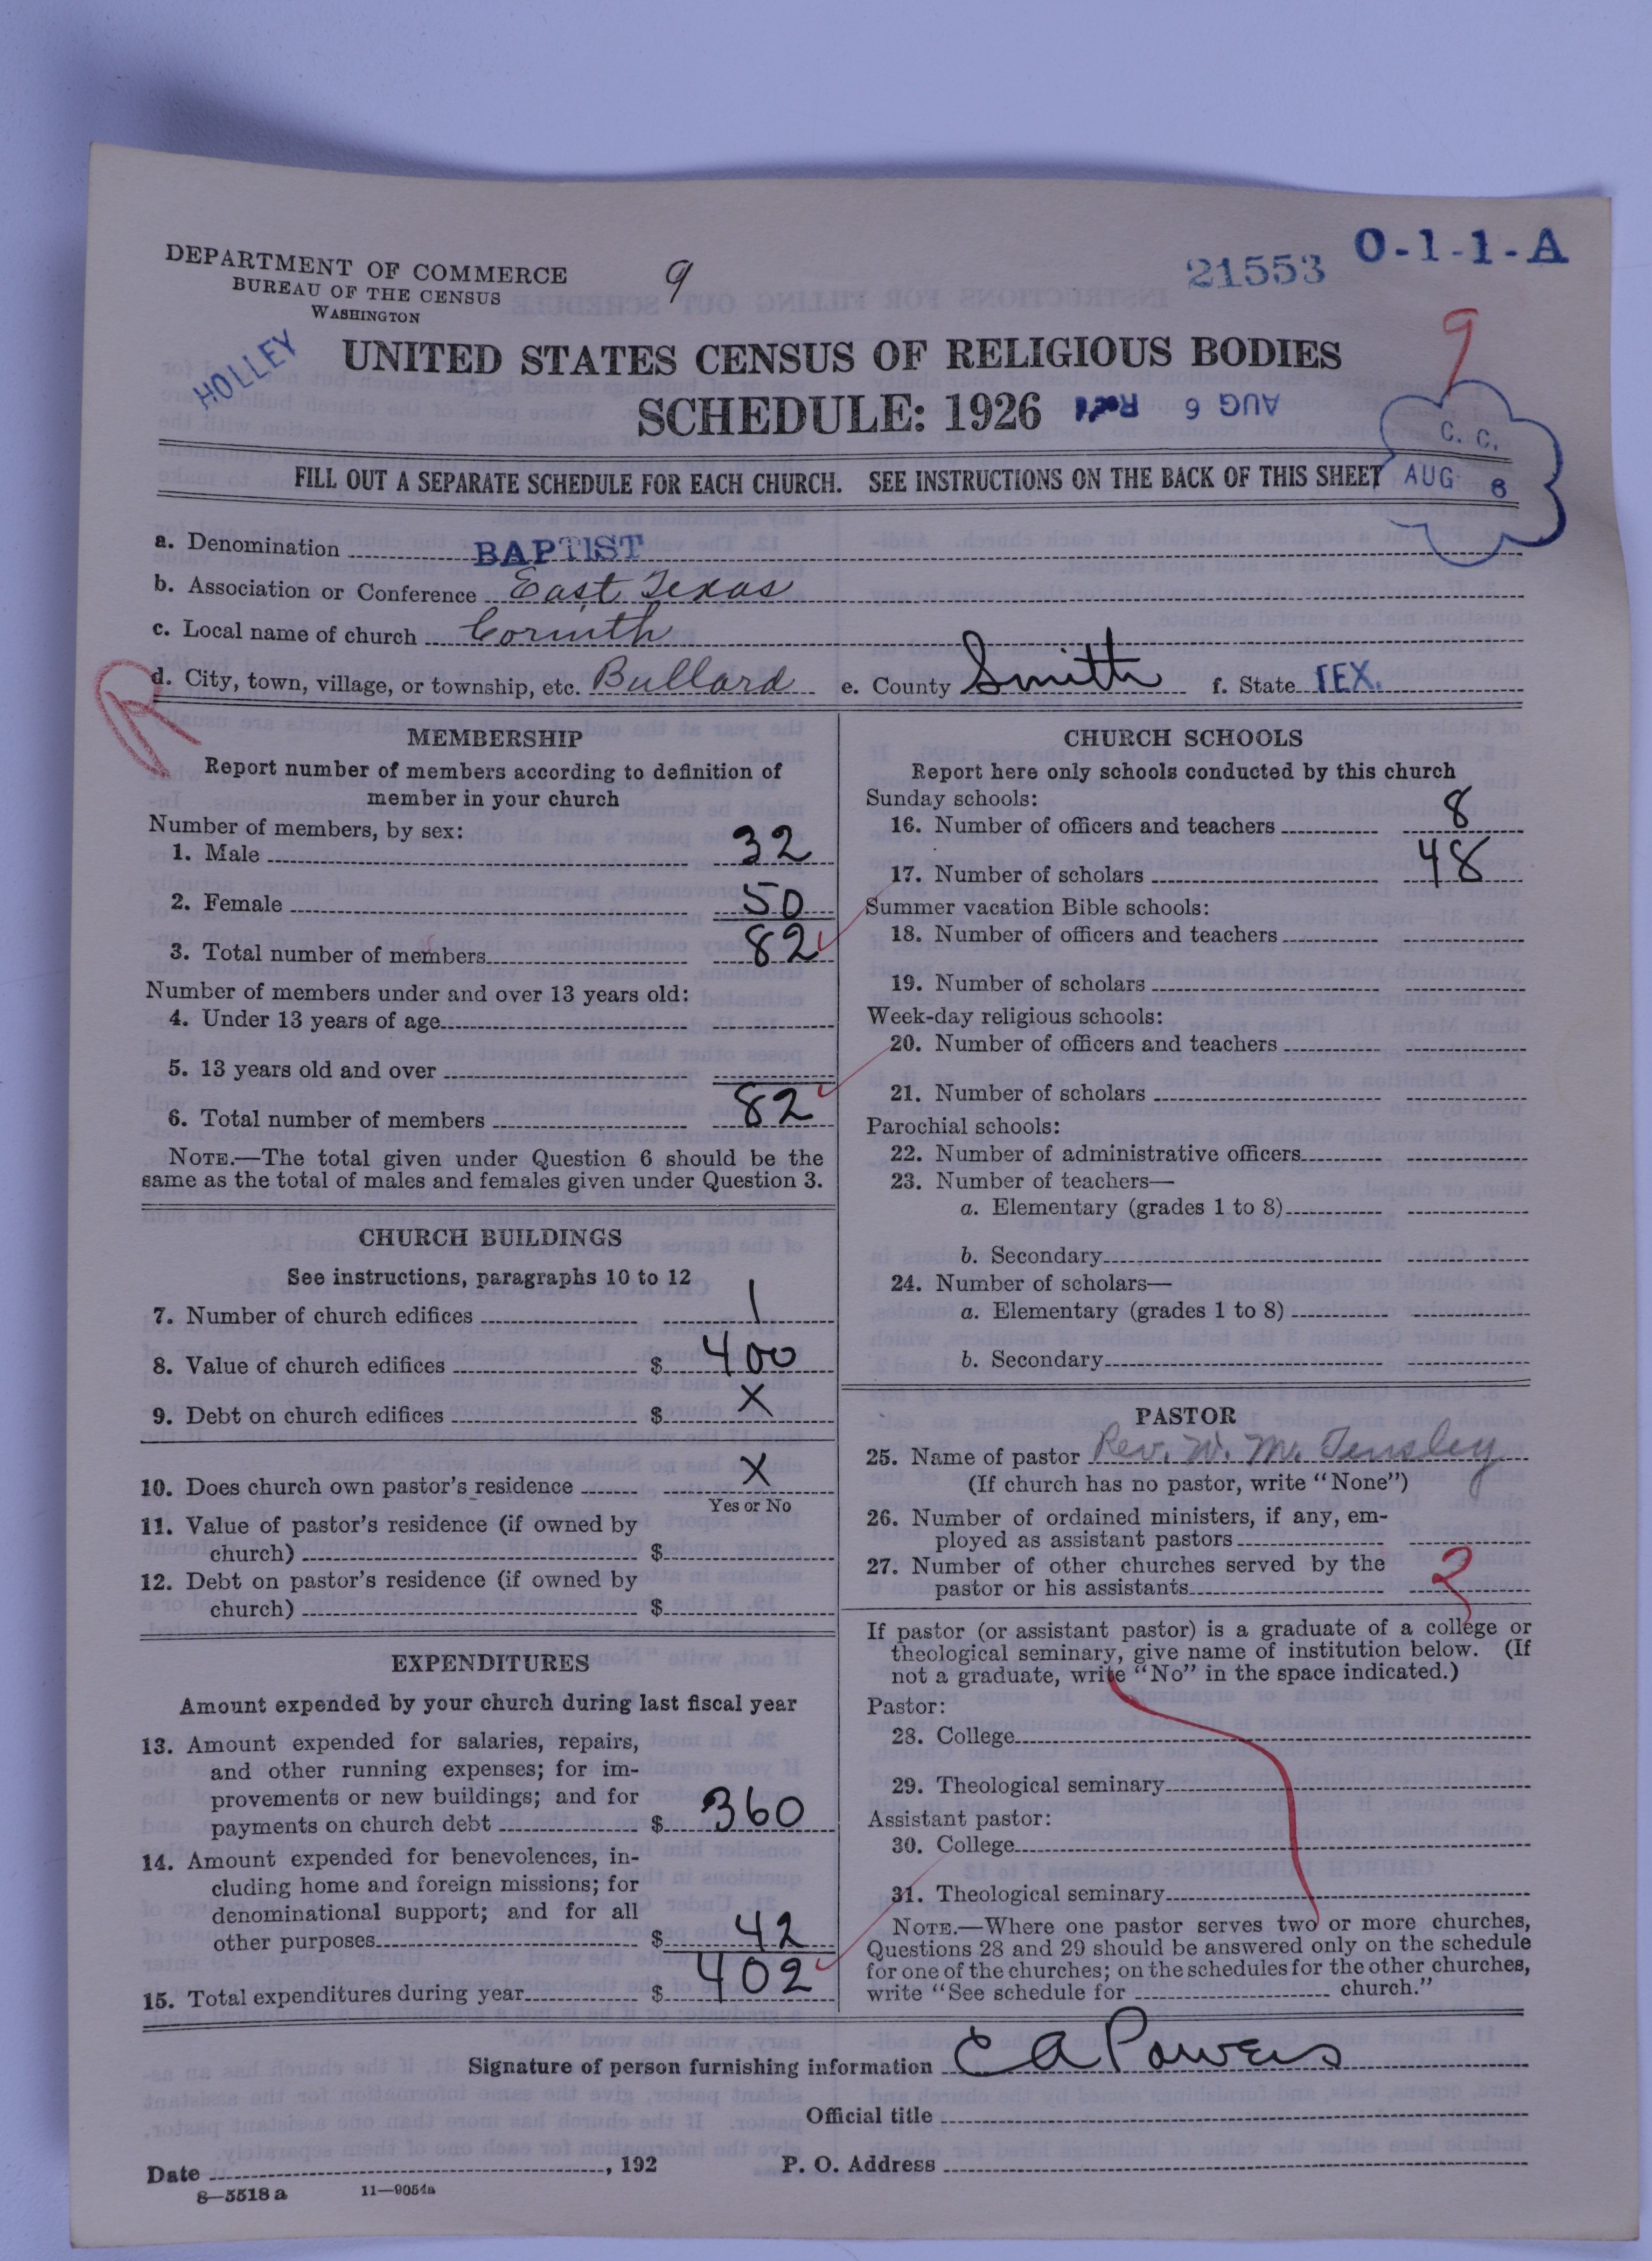 DEPARTMENT OF COMMERCE
BUREAU OF THE CENSUS
WASHINGTON
9
21553
O-1-1-A
HOLLEY
9
UNITED STATES CENSUS OF RELIGIOUS BODIES
SCHEDULE: 1926
Rec'd AUG 6
C. C.
AUG 6
FILL OUT A SEPARATE SCHEDULE FOR EACH CHURCH. SEE INSTRUCTIONS ON THE BACK OF THIS SHEET
a. Denomination BAPTIST
b. Association or Conference East Texas
c. Local name of church Corinth
R
d. City, town, village, or township, etc. Bullard e. County Smith f. State TEX.
MEMBERSHIP
Report number of members according to definition of
member in your church
Number of members, by sex:
1. Male 32
2. Female 50
3. Total number of members 82
Number of members under and over 13 years old:
4. Under 13 years of age
5. 13 years old and over
6. Total number of members 82
NOTE.—The total given under Question 6 should be the
same as the total of males and females given under Question 3.
CHURCH BUILDINGS
See instructions, paragraphs 10 to 12
7. Number of church edifices 1
8. Value of church edifices $ 400
9. Debt on church edifices $ X
10. Does church own pastor's residence X
Yes or No
11. Value of pastor's residence (if owned by
church) $
12. Debt on pastor's residence (if owned by
church) $
EXPENDITURES
Amount expended by your church during last fiscal year
13. Amount expended for salaries, repairs,
and other running expenses; for im-
provements or new buildings; and for
payments on church debt $ 360
14. Amount expended for benevolences, in-
cluding home and foreign missions; for
denominational support; and for all
other purposes $ 42
15. Total expenditures during year $ 402
CHURCH SCHOOLS
Report here only schools conducted by this church
Sunday schools:
16. Number of officers and teachers 8
17. Number of scholars 48
Summer vacation Bible schools:
18. Number of officers and teachers
19. Number of scholars
Week-day religious schools:
20. Number of officers and teachers
21. Number of scholars
Parochial schools:
22. Number of administrative officers
23. Number of teachers—
a. Elementary (grades 1 to 8)
b. Secondary
24. Number of scholars—
a. Elementary (grades 1 to 8)
b. Secondary
PASTOR
25. Name of pastor Rev. W. M. Tensley
(If church has no pastor, write "None")
26. Number of ordained ministers, if any, em-
ployed as assistant pastors
27. Number of other churches served by the
pastor or his assistants 2
If pastor (or assistant pastor) is a graduate of a college or
theological seminary, give name of institution below. (If
not a graduate, write "No" in the space indicated.)
Pastor:
28. College
29. Theological seminary
Assistant pastor:
30. College
31. Theological seminary
NOTE.—Where one pastor serves two or more churches,
Questions 28 and 29 should be answered only on the schedule
for one of the churches; on the schedules for the other churches,
write "See schedule for church."
Signature of person furnishing information C A Powers
Official title
Date , 192 P. O. Address
8—5518 a 11—9054a